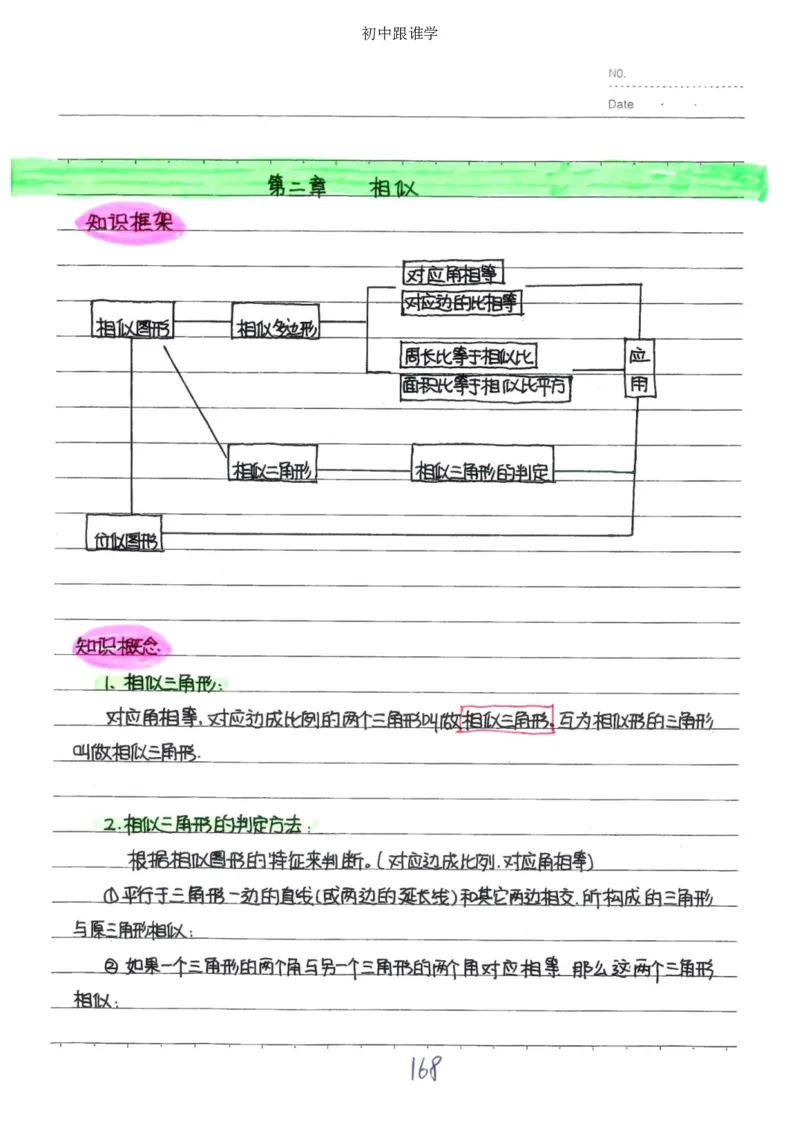 初中跟谁学
NO.
Date
第二章 相似
知识框架
对应角相等
对应边的比相等
相似图形 相似多边形
周长比等于相似比 应
面积比等于相似比平方 用
相似三角形 相似三角形的判定
位似图形
知识概念
1、相似三角形：
对应角相等，对应边成比例的两个三角形叫做相似三角形。互为相似形的三角形
叫做相似三角形.
2.相似三角形的判定方法：
根据相似图形的特征来判断。(对应边成比例.对应角相等)
①平行于三角形一边的直线(或两边的延长线)和其它两边相交.所构成的三角形
与原三角形相似；
②如果一个三角形的两个角与另一个三角形的两个角对应相等 那么这两个三角形
相似；
168